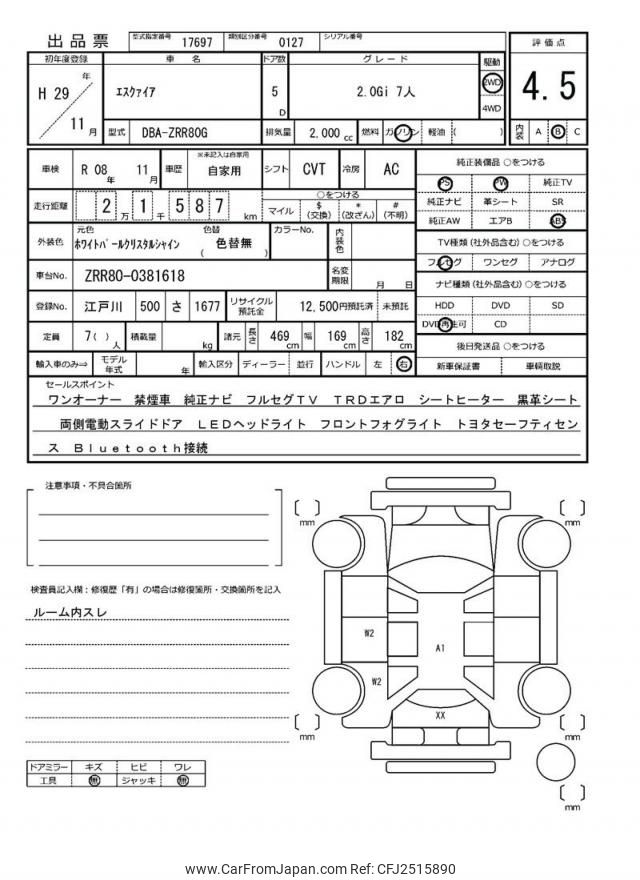 出品票 型式指定番号 17697 類別区分番号 0127 シリアル番号
初年度登録 車 名 ドア数 グレード 駆動 評価点
H 29 年 エスクァイア 5 D 2.0Gi 7人 2WD 4WD 4.5
11 月 型式 DBA-ZRR80G 排気量 2,000 cc 燃料 ガソリン 軽油 ( ) 内装 A B C
車検 R 08 年 11 月 車歴 ※未記入は自家用 自家用 シフト CVT 冷房 AC
純正装備品 ○をつける
PS PW 純正TV
純正ナビ 革シート SR
純正AW エアB ABS
走行距離 2 万 1 千 5 8 7 km
○をつける
マイル $ (交換) * (改ざん) # (不明)
外装色 元色 ホワイトパールクリスタルシャイン 色替 ( 色替無 ) カラーNo. 内装色
TV種類 (社外品含む) ○をつける
フルセグ ワンセグ アナログ
車台No. ZRR80-0381618 名変期限 月 日
ナビ種類 (社外品含む) ○をつける
HDD DVD SD
DVD再生可 CD
登録No. 江戸川 500 さ 1677 リサイクル預託金 12,500円預託済 未預託
定員 7( ) 人 積載量 kg 諸元 長さ 469 cm 幅 169 cm 高さ 182 cm
後日発送品 ○をつける
新車保証書 車輌取説
輸入車のみ⇒ モデル年式 年 輸入区分 ディーラー 並行 ハンドル 左 右
セールスポイント
ワンオーナー 禁煙車 純正ナビ フルセグTV TRDエアロ シートヒーター 黒革シート
両側電動スライドドア LEDヘッドライト フロントフォグライト トヨタセーフティセン
ス Bluetooth接続
注意事項・不具合箇所
検査員記入欄:修復歴「有」の場合は修復箇所・交換箇所を記入
ルーム内スレ
ドアミラー キズ ヒビ ワレ
工具 無 ジャッキ 無
[ ] mm
[ ] mm
W2
A1
W2
XX
[ ] mm
[ ] mm
[ ] mm
www.CarFromJapan.com Ref: CFJ2515890